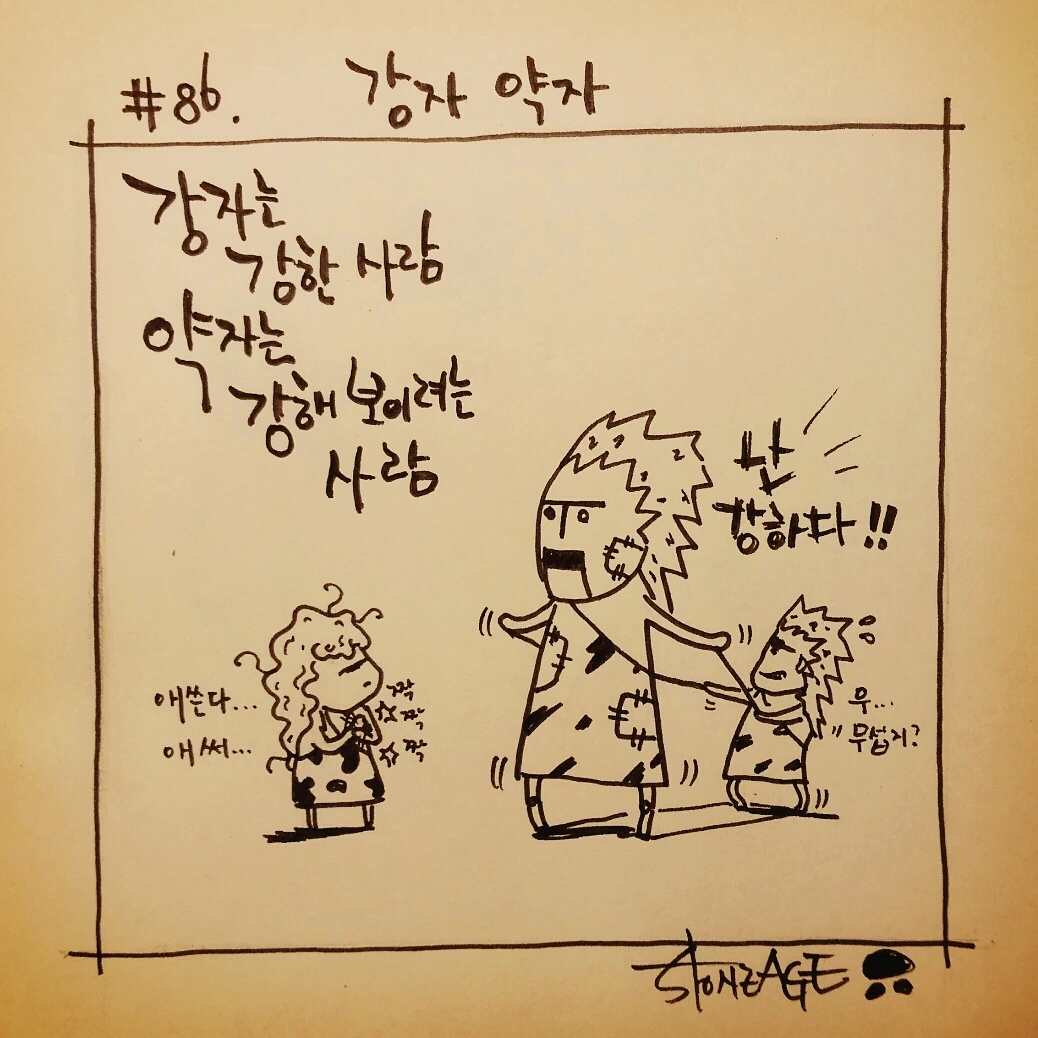 #86. 강자 약자
강자는
강한 사람
약자는
강해 보이려는
사람
난
강하다!!
애쓴다...
애써...
짝
짝
짝
우...
무섭지?
STONEAGE